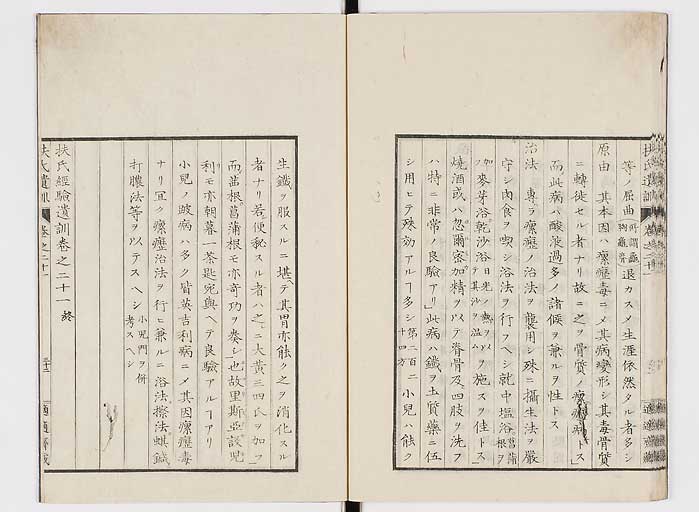 扶氏遺訓 巻之二十一
等ノ屈曲所謂龜胸龜背退カスメ生涯依然タル者多シ
原由 其本因ハ瘰癧毒ニメ其病變形シ其毒骨質
ニ轉徙セル者ナリ故ニ之ヲ骨質ノ瘰癧病トス
而此病ハ酸液過多ノ諸候ヲ兼ルヲ性トス
治法 專ラ瘰癧ノ治法ヲ襲用シ殊ニ攝生法ヲ嚴
守シ肉食ヲ喫シ浴法ヲ行フヘシ就中塩浴菖蒲根ヲ
加フ麥芽浴乾沙浴日光ノ熱ヲ以テ其沙ヲ温ムヲ施スヲ佳トス
燒酒或ハ忽爾家加精ヲ以テ脊骨及四肢ヲ洗フ
ハ特ニ非常ノ良驗アリ此病ハ鐵ヲ土質藥ニ伍
シ用ヒテ殊効アルヿ多シ第二百二十四方小兒ハ能ク
生鐵ヲ服スルニ堪テ其胃亦能ク之ヲ消化スル
者ナリ若便秘スル者ハ之ニ大黄三四氏ヲ加フ
而茜根菖蒲根モ亦奇功ヲ奏シ也故里斯亞談児
利モ亦朝暮一茶匙宛與ヘテ良驗アルヿアリ
小兒ノ皷病ハ多ク皆英吉利病ニメ其因瘰癧毒
ナリ宜ク瘰癧治法ヲ行ヒ兼ルニ浴法擦法蜞鍼
打膿法等ヲ以テスヘシ小兒門ヲ併考スヘシ
扶氏經驗遺訓巻之二十一終
扶氏遺訓 巻之二十一